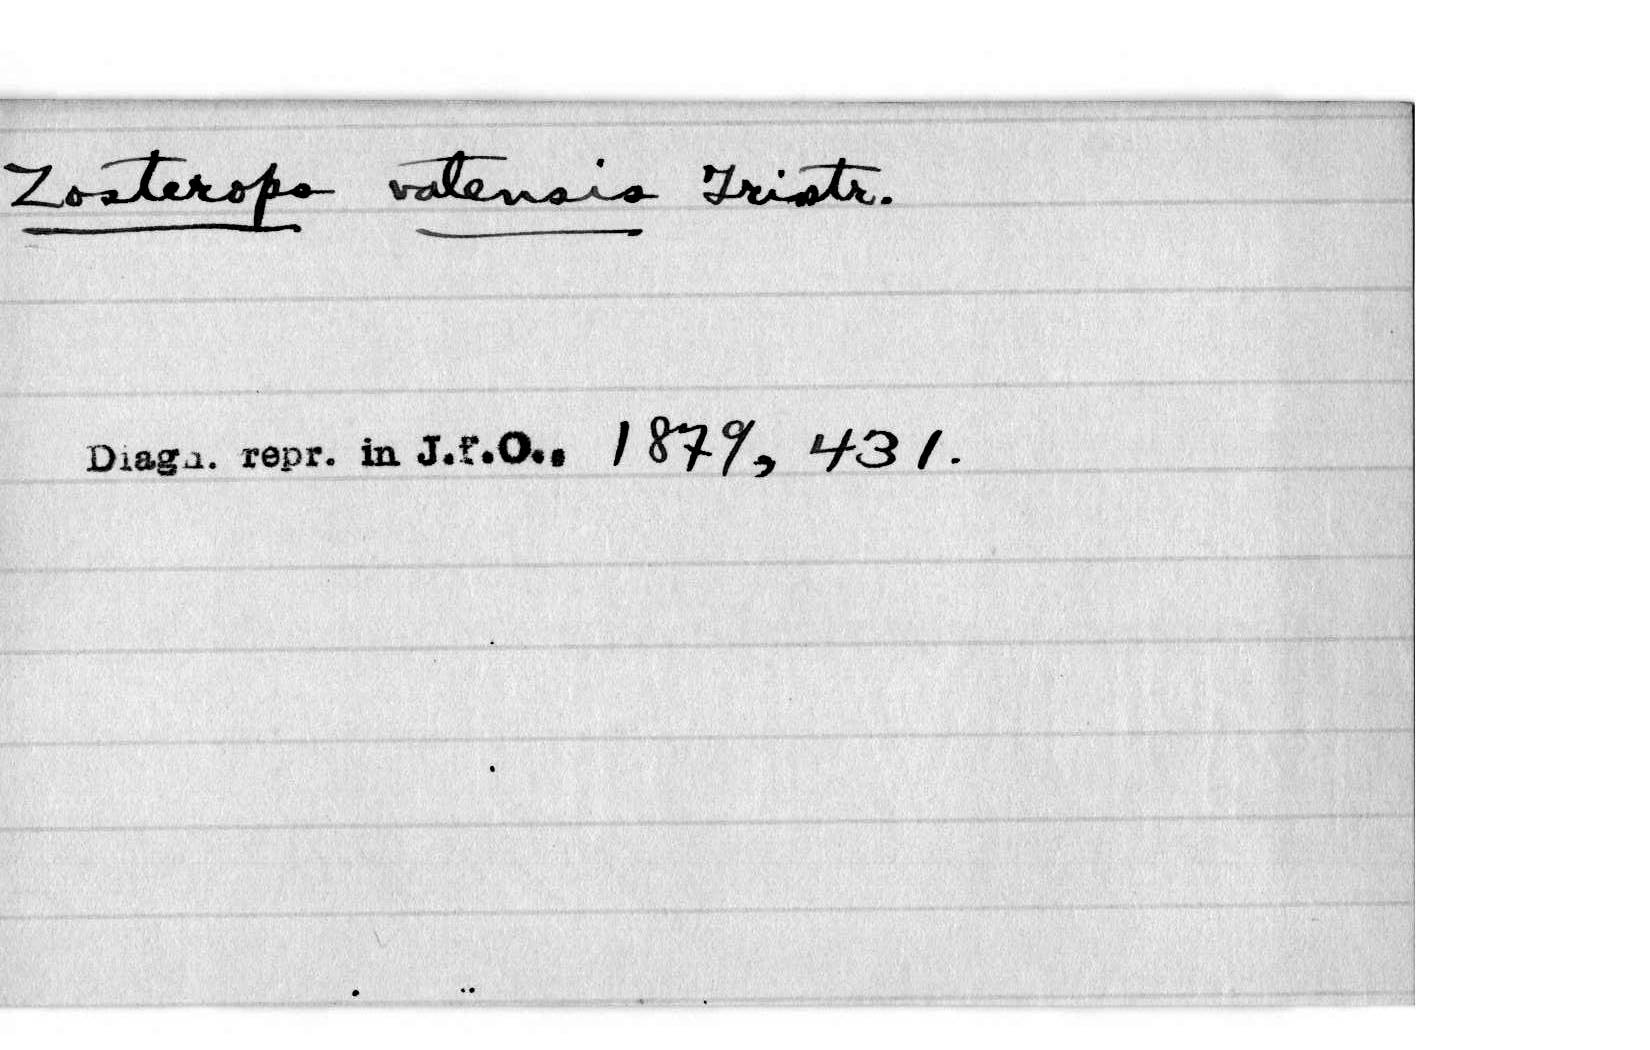 Zosterops vatensis Tristr.
Diagn. repr. in J.f.O., 1879, 431.